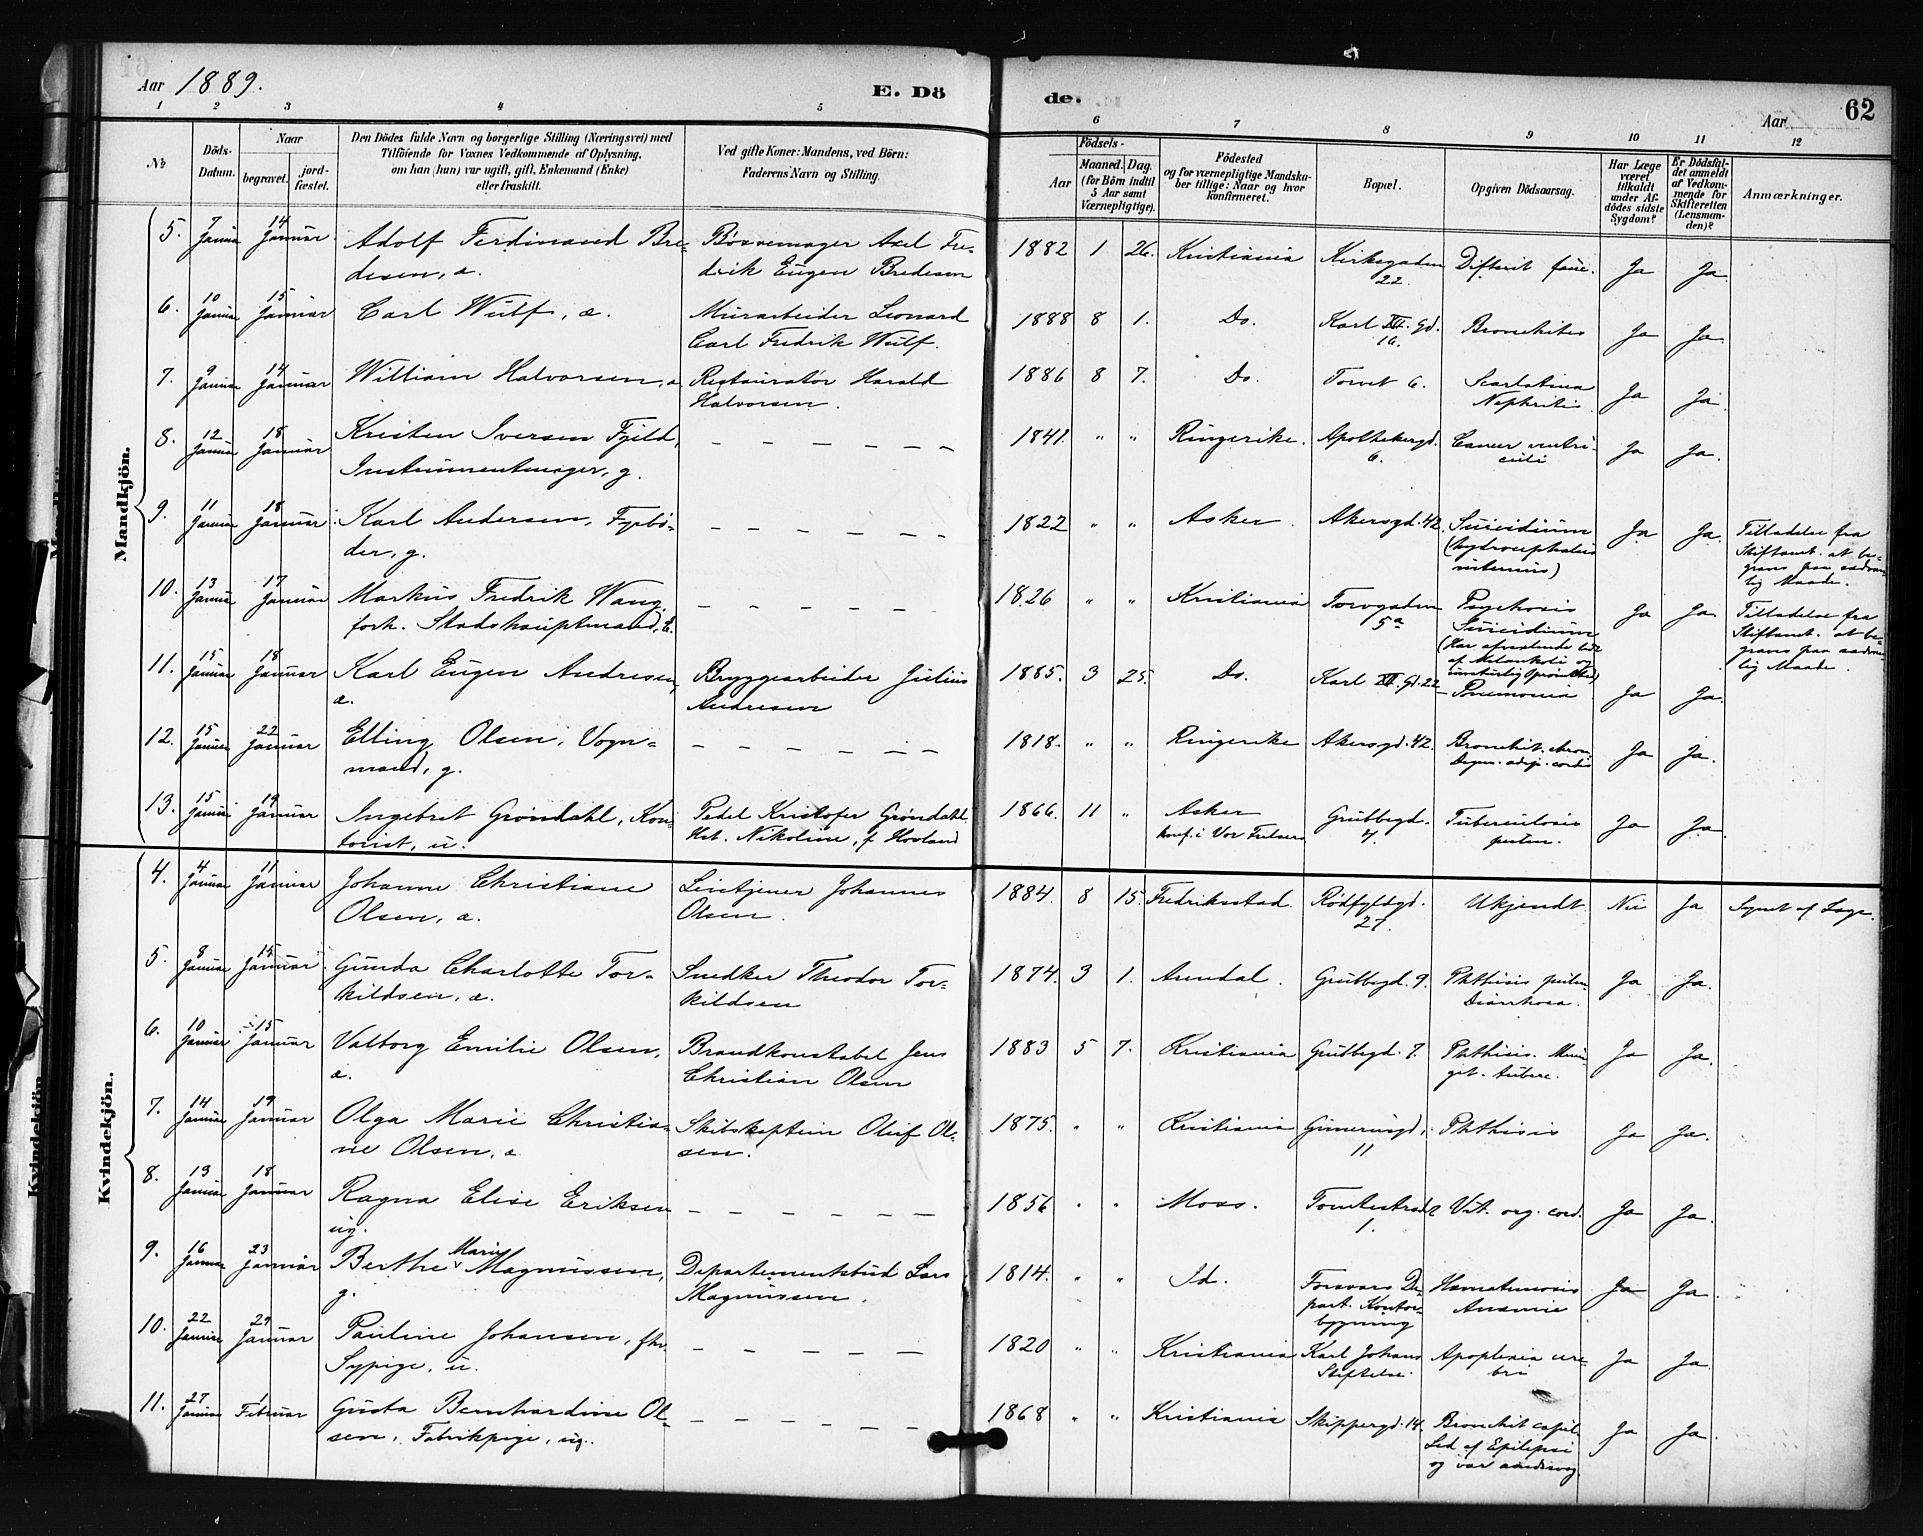 Aar 1889.
E. Döde.
Aar
62
1 2 3 4 5 6 7 8 9 10 11 12
No
Döds-Datum.
Naar
begravet.
jord-fæstet.
Den Dödes fulde Navn og borgerlige Stilling (Næringsvei) med
Tilföiende for Voxnes Vedkommende af Oplysning,
om han (hun) var ugift, gift, Enkemand (Enke)
eller fraskilt.
Ved gifte Koner: Mandens, ved Börn:
Faderens Navn og Stilling.
Födsels-
Aar
Maaned. Dag.
(for Börn indtil
5 Aar samt
Værnepligtige).
Födested
og for værnepligtige Mandska-
ber tillige: Naar og hvor
konfirmeret.
Bopæl.
Opgiven Dödsaarsag.
Har Læge
været
tilkaldt
under Af-
dödes sidste
Sygdom?
Er Dödsfal-
det anmeldt
af Vedkom-
mende for
Skifteretten
(Lensman-
den)?
Anmærkninger.
Mandkjön.
5. 7 Januar 14 Januar Adolf Ferdinand Bre-
desen, æ. Børsemager Axel Fre-
drik Eugen Bredesen 1882 1 26. Kristiania Kirkegaden
22. Difterit fauc. Ja Ja.
6. 10 Januar 15 Januar Carl Wulf, æ. Murarbeider Leonard
Carl Fredrik Wulf. 1888 8 1. Do. Karl XII. Gd.
16. Bronchites Ja Ja.
7. 9 Januar 14 Januar William Halvorsen, æ Restauratør Harald
Halvorsen. 1886 8 7. Do. Torvet 6. Scarlatina
Nephritis. Ja Ja.
8. 12 Januar 18 Januar Kristen Iversen Fjeld,
Instrumentmager, g. – – – – – – 1841. " " Ringerike. Apothekergd.
6. Cancer ventri-
culi Ja Ja.
9. 11 Januar 18 Januar Karl Andersen, Fyrbø-
der, g. – – – – – – 1822 " " Asker. Akersgd. 42. Suicidium
(hydrocephalus
internus) Ja Ja. Tilladelse fra
Stiftamt. at be-
graves paa sædvan-
lig Maade.
10. 13 Januar 17 Januar Markus Fredrik Wang,
forh. Stadshauptmand, E. – – – – – – 1826 " " Kristiania Torvgaden
5a Psychosis
Suicidium
(Har afvexlende lidt
af Melankoli og
unaturlig Oprømthed) Ja Ja. Tilladelse fra
Stiftamt. at be-
graves paa sædvan-
lig Maade.
11. 15 Januar 18 Januar Karl Eugen Andresen,
æ. Bryggearbeider Julius
Andresen 1885. 3 25. Do. Karl XII. Gd. 22 Pneumonia Ja Ja.
12. 15 Januar 22 Januar Elling Olsen, Vogn-
mand, g. – – – – – – 1818. " " Ringerike Akersgd. 42. Bronchit. chron.
Degen. adip. cordis Ja Ja.
13. 15 Januar 19 Januar Ingebret Grøndahl, Kon-
torist, u. Pedel Kristofer Grøndahl
Hst. Nikoline, f Hovland 1866. 11 " Asker
konf. i Vor Frelsers Grubbegd.
4. Tuberculosis
pulm. Ja Ja.
Kvindekjön.
4. 4 Januar 11 Januar Johanne Christiane
Olsen, æ. Leietjener Johannes
Olsen. 1884. 8 15. Fredriksstad. Rødfyldgd.
27. Ukjendt Nei Ja Synet af Læge.
5. 8 Januar 15 Januar Gunda Charlotte Tor-
kildsen, æ. Snedker Theodor Tor-
kildsen 1874. 3 1. Arendal. Grubbegd. 9. Phthisis pulm.
Diarrhoea. Ja Ja.
6. 10 Januar 15 Januar Valborg Emilie Olsen,
æ. Brandkonstabel Jens
Christian Olsen 1883 5 7. Kristiania Grubbegd. 7. Phthisis. Menin-
git. tuberc. Ja Ja.
7. 14 Januar 19 Januar Olga Marie Christia-
ne Olsen, æ Skibskaptein Oluf Ol-
sen. 1875. " " Kristiania 11 Phthisis Ja Ja.
8. 13 Januar 18 Januar Ragna Elise Eriksen
ug. – – – – – – 1856 " " Moss. 1. Vit. org. cord. Ja Ja.
9. 16 Januar 23 Januar Berthe Marie Magnussen,
g. Departementsbud Lars
Magnussen. 1814. " " Id. Forsvars De-
part. Kontor-
bygning Hæmatemesis
Anæmia Ja Ja.
10. 22 Januar 29 Januar Pauline Johansen, fhv.
Sypige, u. – – – – – 1820 " " Kristiania Karl Johans
Stiftelse. Apoplexia cere-
bri Ja Ja.
11. 27 Januar 1 Februar Gusta Bernhardine Ol-
sen, Fabrikpige, ug. – – – – – – 1868 " " Kristiania Skippergd. 14. Bronchit capil.
Led af Epilepsi
og var aandssvag. Ja Ja.